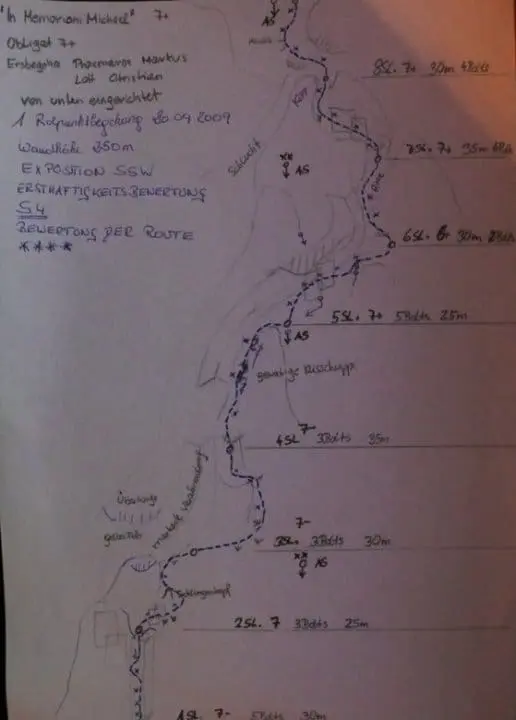 "In Memoriam Michael" 7+
Obligat 7+
Erstbegeher Markus
Christian
von unten eingerichtet
1 Rotpunktbegehung 20.09.2009
Wandhöhe 350m
EXPOSITION SSW
ERSTHAFTIGKEITSBEWERTUNG
S4
BEWERTUNG DER ROUTE
****
AS
8SL. 7+ 30m 4Bolts
Kopf
Schlucht
AS
7SL. 7+ 35m
6SL. 6+ 30m
5SL. 7+ 5Bolts 25m
AS
gewaltige Rissschuppe
4SL 7- 3Bolts 35m
markante Verschneidung
Überhänge
7-
3SL. 3Bolts 30m
AS
2SL. 7 3Bolts 25m
1SL. 7- 5Bolts 30m